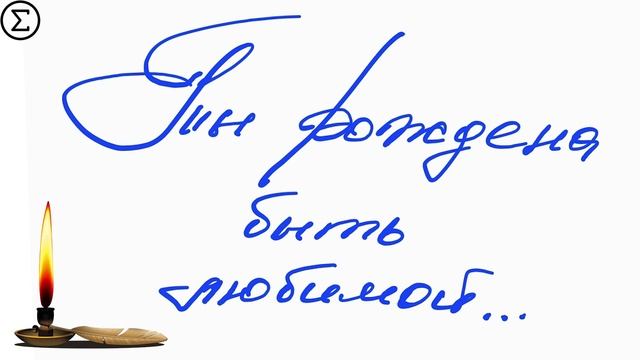 Σ
Ты рождена
быть
любимой...